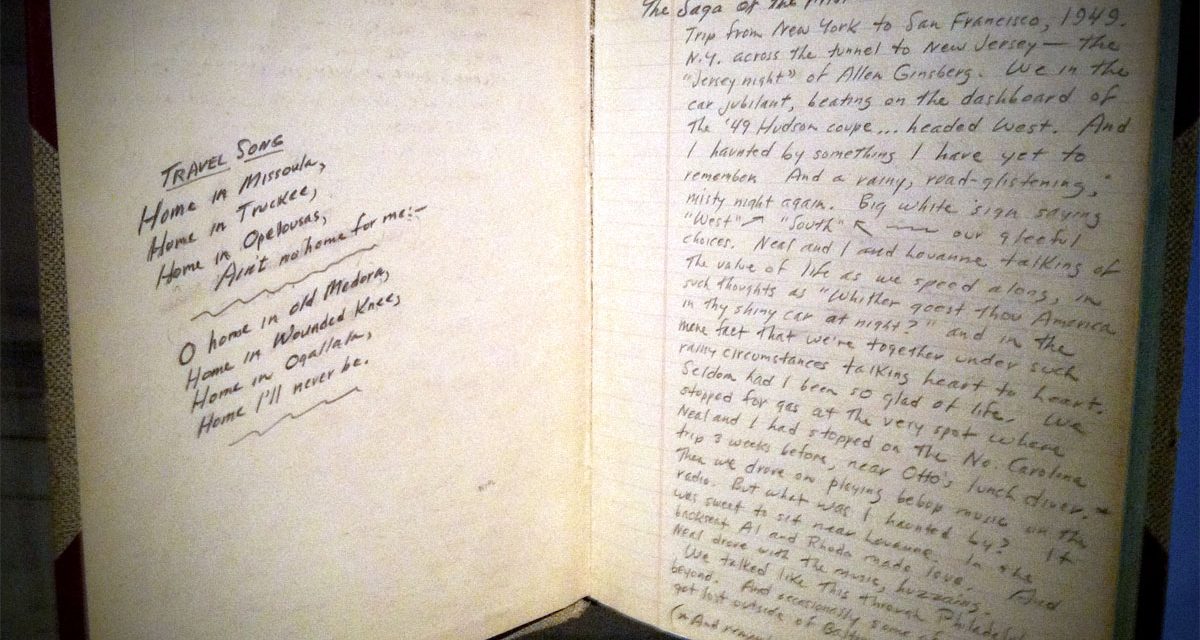 TRAVEL SONG
Home in Missoula,
Home in Truckee,
Home in Opelousas,
Ain't no home for me:—
O home in old Medora,
Home in Wounded Knee,
Home in Ogallala,
Home I'll never be.
The Saga of the
Trip from New York to San Francisco, 1949.
N.Y. across the tunnel to New Jersey — the
"Jersey night" of Allen Ginsberg. We in the
car jubilant, beating on the dashboard of
the '49 Hudson coupe... headed West. And
I haunted by something I have yet to
remember. And a rainy, road-glistening,
misty night again. Big white sign saying
"West" → "South" ← — our gleeful
choices. Neal and I and Louanne talking of
the value of life as we speed along, in
such thoughts as "Whither goest thou America
in thy shiny car at night?" and in the
mere fact that we're together under such
rainy circumstances talking heart to heart.
Seldom had I been so glad of life. We
stopped for gas at the very spot where
Neal and I had stopped on the No. Carolina
trip 3 weeks before, near Otto's lunch diner.
Then we drove on playing bebop music on the
radio. But what was I haunted by? It
was sweet to sit near Louanne. In the
backseat Al and Rhoda made love. And
Neal drove with the music, huzzaing.
We talked like this through
beyond. And occasionally some of
got lost outside of